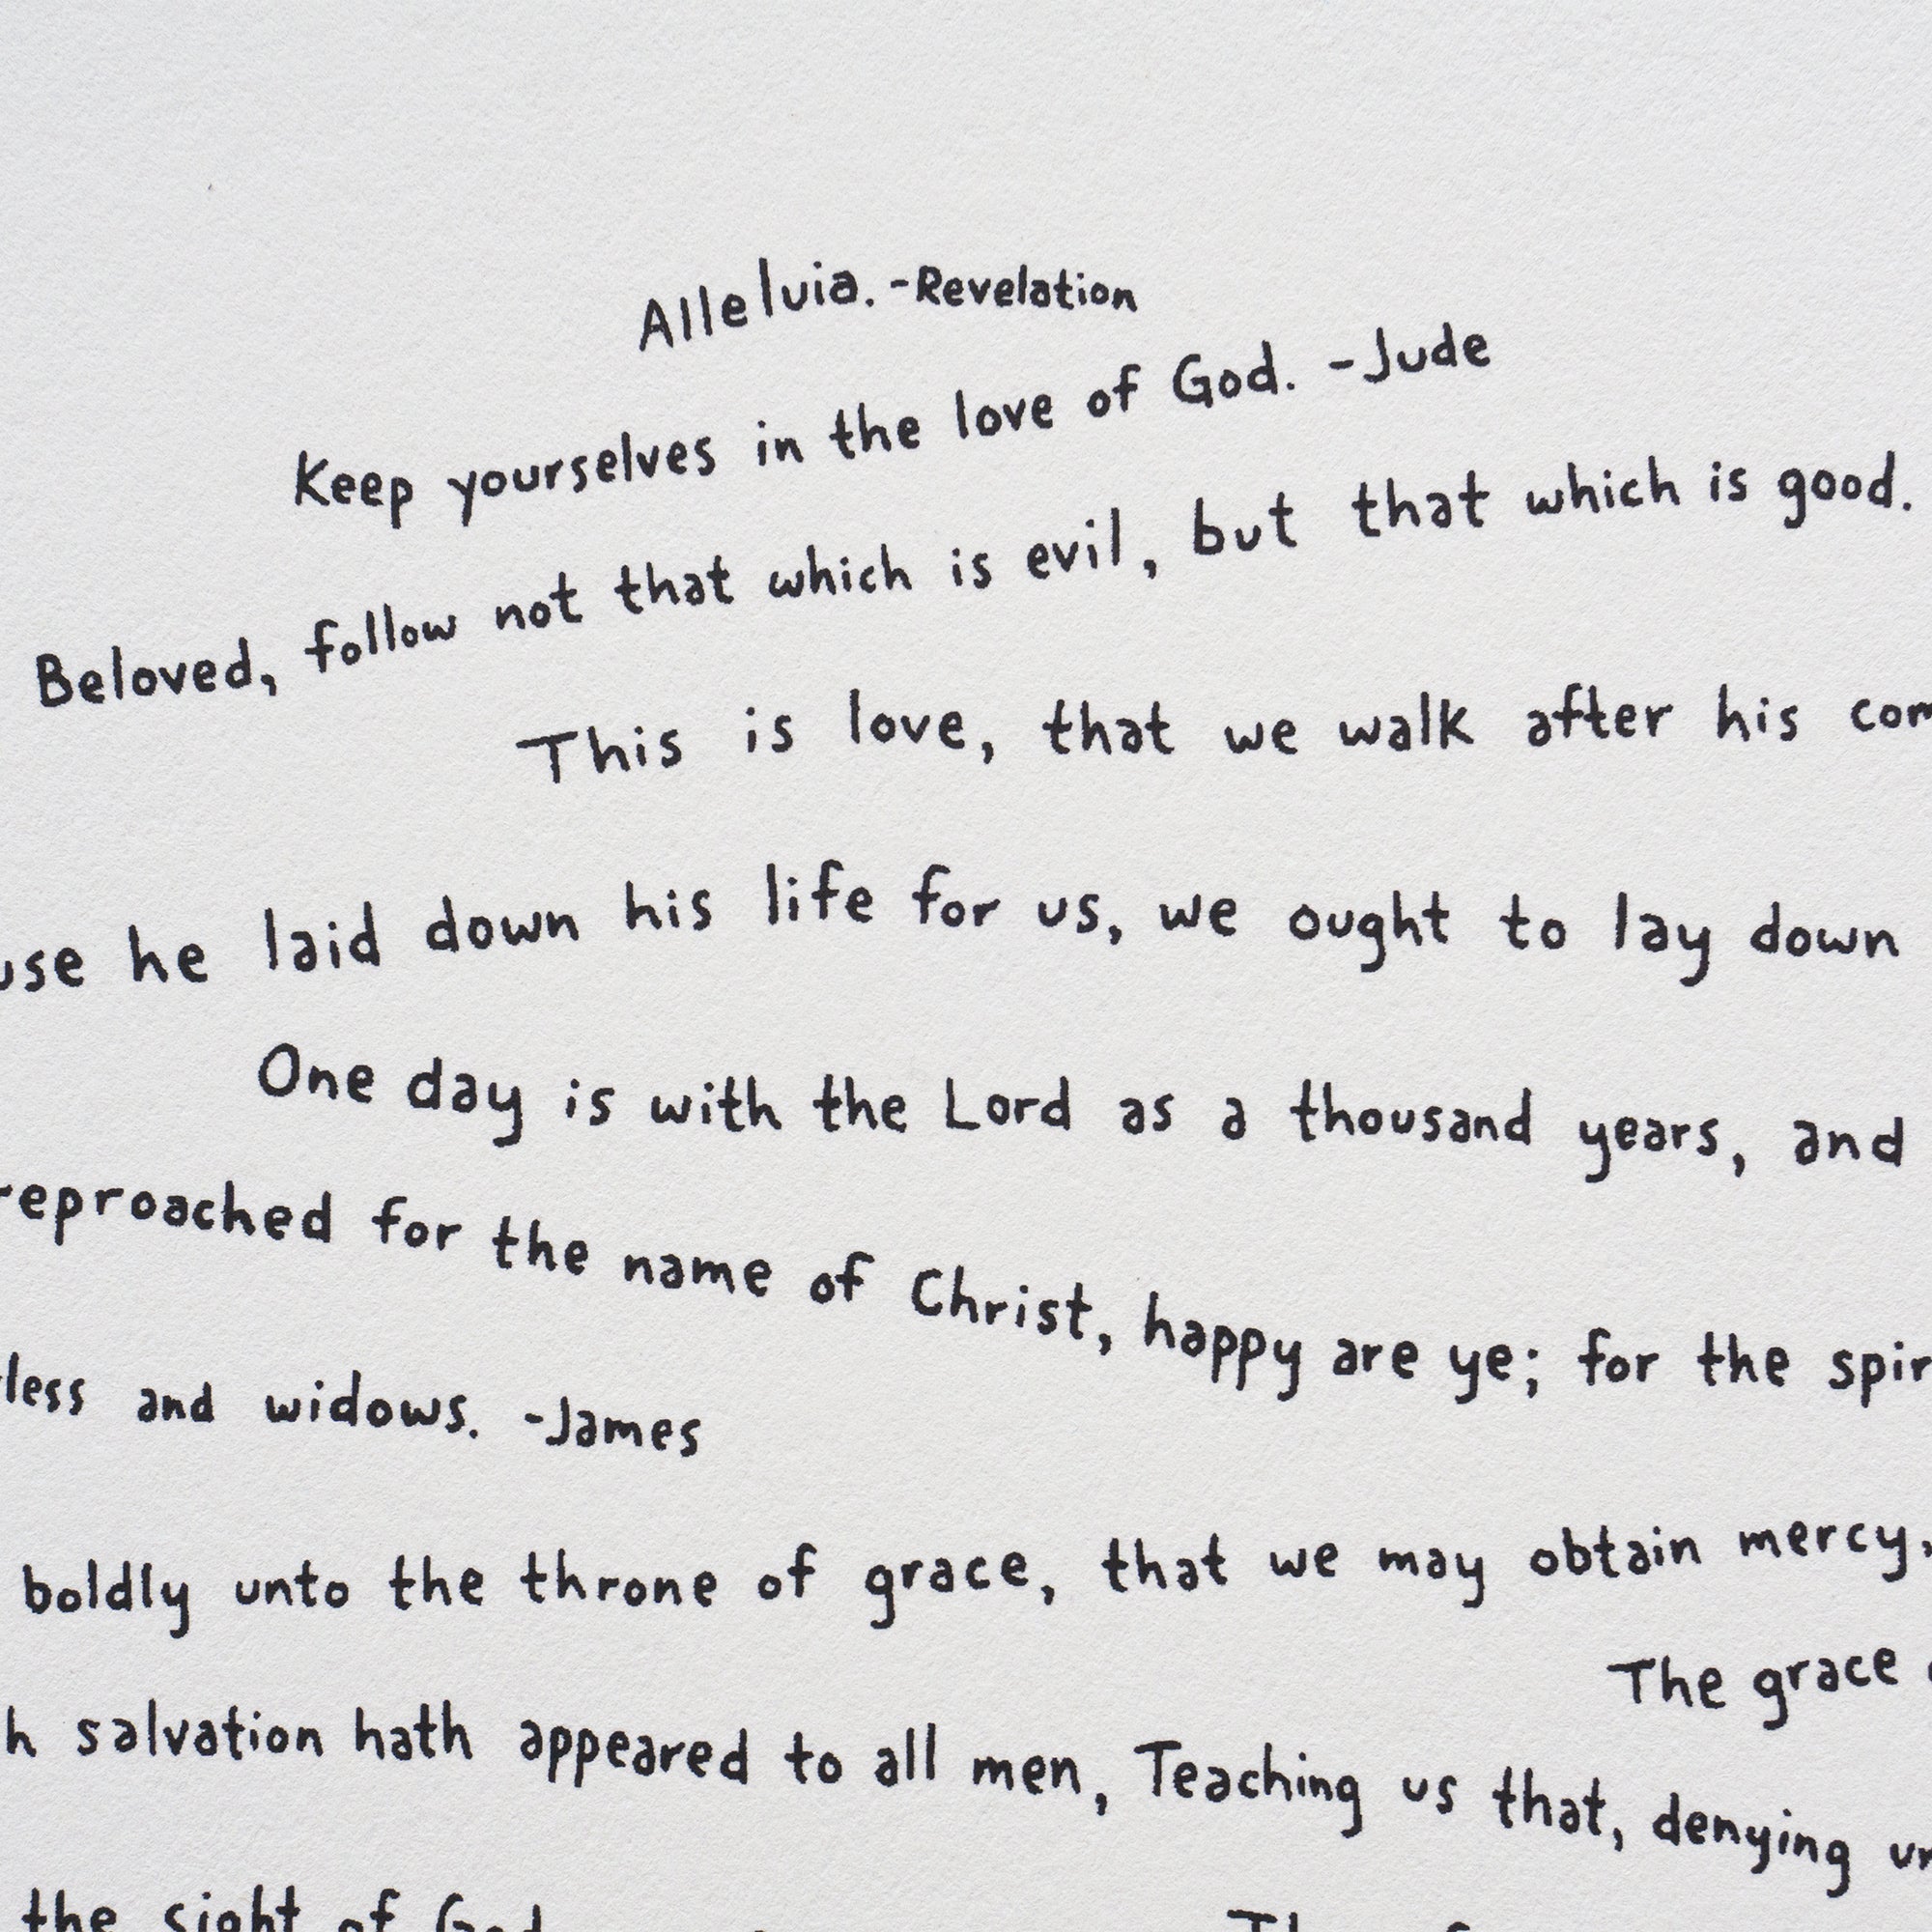 Alleluia. -Revelation
Keep yourselves in the love of God. -Jude
Beloved, follow not that which is evil, but that which is good.
This is love, that we walk after his
he laid down his life for us, we ought to lay down
One day is with the Lord as a thousand years, and
reproached for the name of Christ, happy are ye; for the
less and widows. -James
boldly unto the throne of grace, that we may obtain mercy,
The grace
salvation hath appeared to all men, Teaching us that, denying
the sight of God